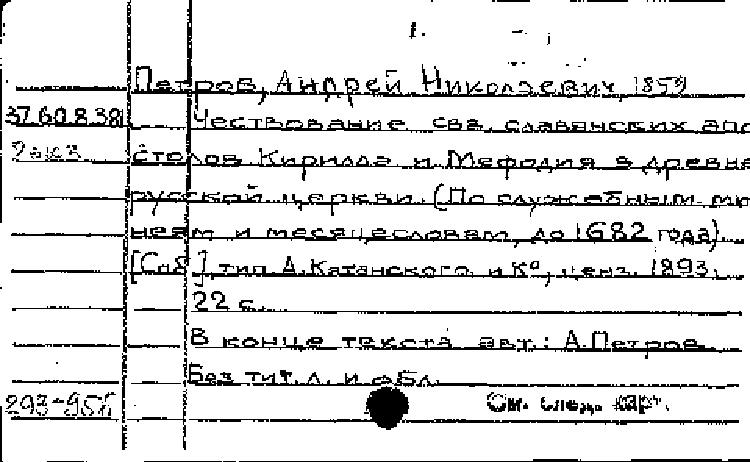 1.
Петров, Андрей Николаевич, 1859
37.60.838 Чествование свв. славянских апо
2 экз столов Кирилла и Мефодия в древне
русской церкви. (По служебным ми
неям и месяцесловам, до 1682 года).
[Спб], тип. А. Катанского и К°, ценз. 1893.
22 с.
В конце текста авт.: А. Петров.
Без тит. л. и обл.
См. след. карт.